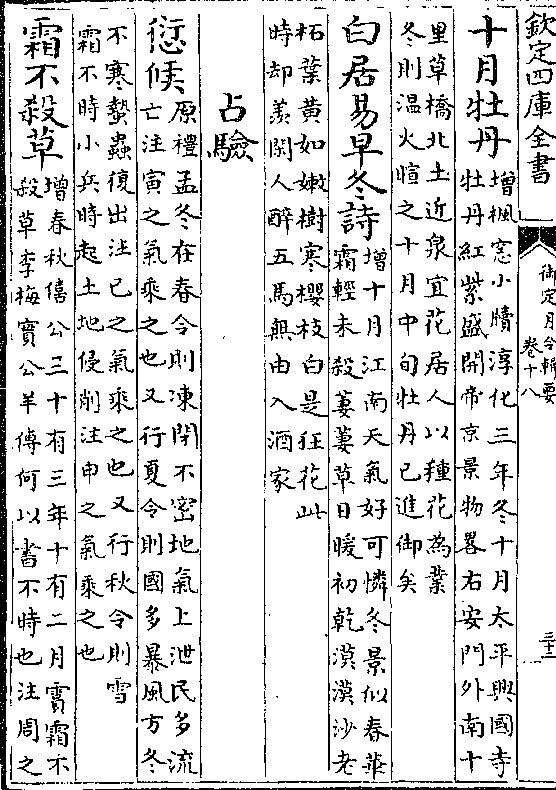 欽定四庫全書
御定月令輯要
卷十八
三十二
十月牡丹
增楓窻小牘淳化三年冬十月太平興國寺
牡丹紅紫盛開帝京景物畧右安門外南十
里草橋北土近泉宜花居人以種花為業
冬則温火暄之十月中旬牡丹已進御矣
白居易早冬詩
增十月江南天氣好可憐冬景似春華
霜輕未殺萋萋草日暖初乾漠漠沙老
柘葉黃如嫩樹寒櫻枝白是狂花此
時却羨閑人醉五馬無由入酒家
占驗
愆候
原禮孟冬在春令則凍閉不密地氣上泄民多流
亡注寅之氣乘之也又行夏令則國多暴風方冬
不寒蟄蟲復出注巳之氣乘之也又行秋令則雪
霜不時小兵時起土地侵削注申之氣乘之也
霜不殺草
增春秋僖公三十有三年十有二月霣霜不
殺草李梅實公羊傅何以書不時也注周之